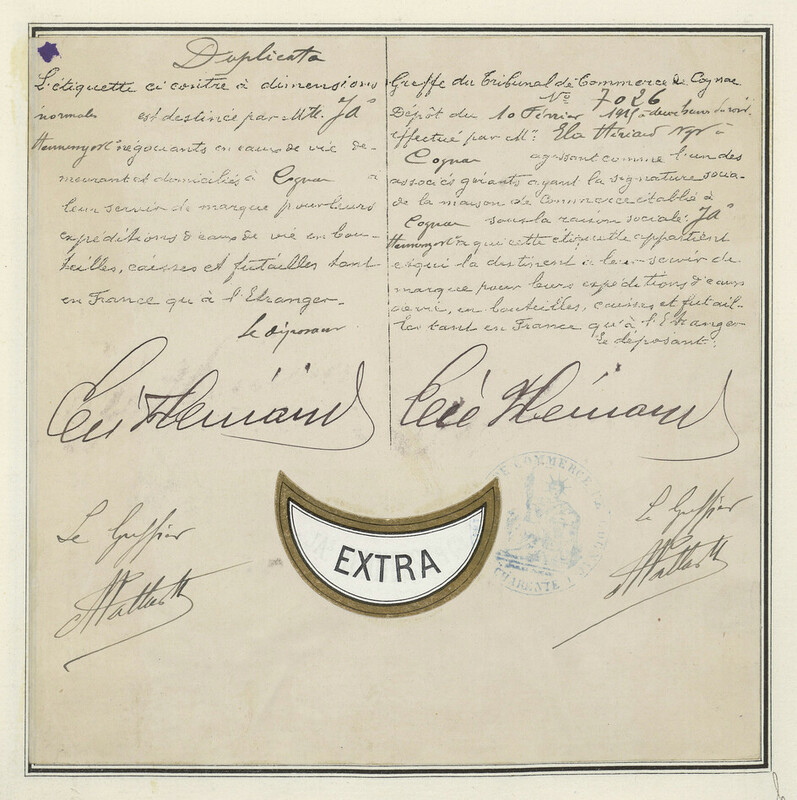 Duplicata
L'étiquette ci contre à dimensions
normales est destinée par MM. Jas
Hennessy & Co négociants en eaux de vie de-
meurant et domiciliés à Cognac à
leur servir de marque pour leurs
expéditions d'eaux de vie en bou-
teilles, caisses et futailles tant
en France qu'à l'Etranger.
Le déposant
Le Greffier
Greffe du Tribunal de Commerce de Cognac
No 7026
Dépôt du 10 Février à deux heures du soir
effectué par Mr.
Cognac agissant comme l'un des
associés gérants ayant la signature socia-
le de la maison de Commerce établie à
Cognac sous la raison sociale: Jas
Hennessy & Co à qui cette étiquette appartient
et qui la destinent à leur servir de
marque pour leurs expéditions d'eaux
de vie, en bouteilles, caisses et futail-
les tant en France qu'à l'Etranger
Le déposant:
Le Greffier
EXTRA
DE COMMERCE DE
CHARENTE